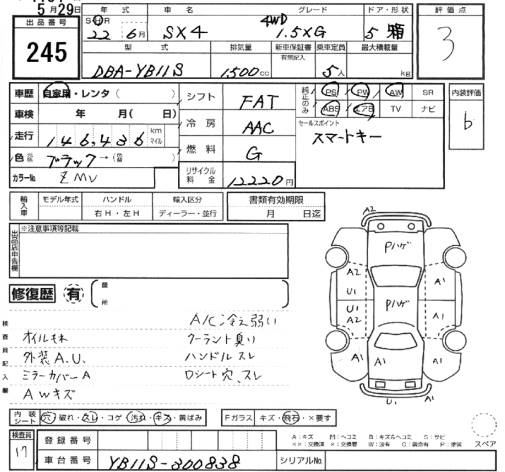 5月29日
出品番号
245
年式 車名 グレード ドア・形状 評価点
SHR
22 6月 SX4 4WD 1.5XG 5 箱 3
型式 排気量 新車保証書 乗車定員 最大積載量
有無記入
DBA-YB11S 1500cc 5人 kg
車歴 自家用・レンタ( )
車検 年 月( 日)
走行 146,436 km マイル
色 ブラック→
カラーNo ZMV
シフト FAT
冷房 AAC
燃料 G
リサイクル料金 12220円
純正のみ PS PW AW SR
ABS エアB TV ナビ
セールスポイント
スマートキー
内装評価
b
輸入車 モデル年式 ハンドル 輸入区分
右H・左H ディーラー・並行
書類有効期限
月 日迄
出品店申告欄
※注意事項等記載
修復歴 有 箇所
検査員記入欄
オイルもれ
外装A.U.
ミラーカバーA
AWキズ
A/C冷え弱い
クーラント臭り
ハンドルスレ
Dシート穴、スレ
A2
Pハゲ
A2 A1
U1
U1 Pハゲ
A2 A1
A1
U1 A1
内装シート 穴・破れ・スレ・コゲ・汚れ・キズ・黄ばみ
Fガラス キズ・飛石・×要す
スペア
検査員 17
登録番号
車台番号 YB11S-300838 シリアルNo
A:キズ M:ヘコミ B:キズ&ヘコミ S:サビ